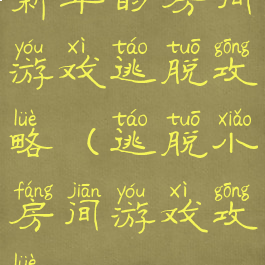 新年的房间
yóu xì táo tuō gōng
游戏逃脱攻
lüè táo tuō xiǎo
略（逃脱小
fáng jiān yóu xì gōng
房间游戏攻
lüè